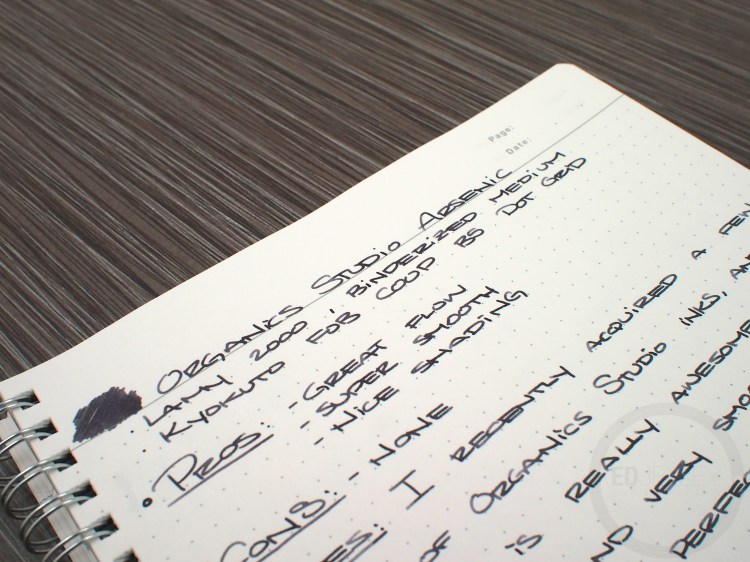 Page:
Date:
ORGANICS STUDIO ARSENIC
LAMY 2000, BINDERIZED MEDIUM
KYOKUTO FOB COOP B5 DOT GRID
PROS: - GREAT FLOW
- SUPER SMOOTH
- NICE SHADING
CONS: - NONE
I RECENTLY ACQUIRED A FEW
OF ORGANICS STUDIO INKS, AND
IS REALLY AWESOME
VERY SMOO
PERFEC